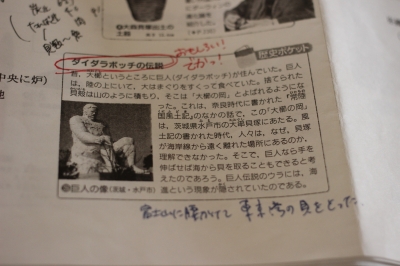 土
(東京都)
中央に炉)
ダイダラボッチの伝説
歴史ポケット
昔、大櫛というところに巨人(ダイダラボッチ)が住んでいた。巨人
は、陸の上にいて、大はまぐりをすくって食べていた。捨てられた
貝殻は山のように積もり、そこは「大櫛の岡」とよばれるようにな
った。これは、奈良時代に書かれた『常陸
国風土記』のなかの話で、この「大櫛の岡」
は、茨城県水戸市の大串貝塚にあたる。風
土記の書かれた時代、人々は、なぜ、貝塚
が海岸線から遠く離れた場所にあるのか、
理解できなかった。そこで、巨人なら手を
伸ばせば海から貝を取ることもできると考
えたのであろう。巨人伝説のウラには、海
進という現象が隠されていたのである。
③巨人の像(茨城・水戸市)
富士山に腰かけて 東京湾の貝をとった